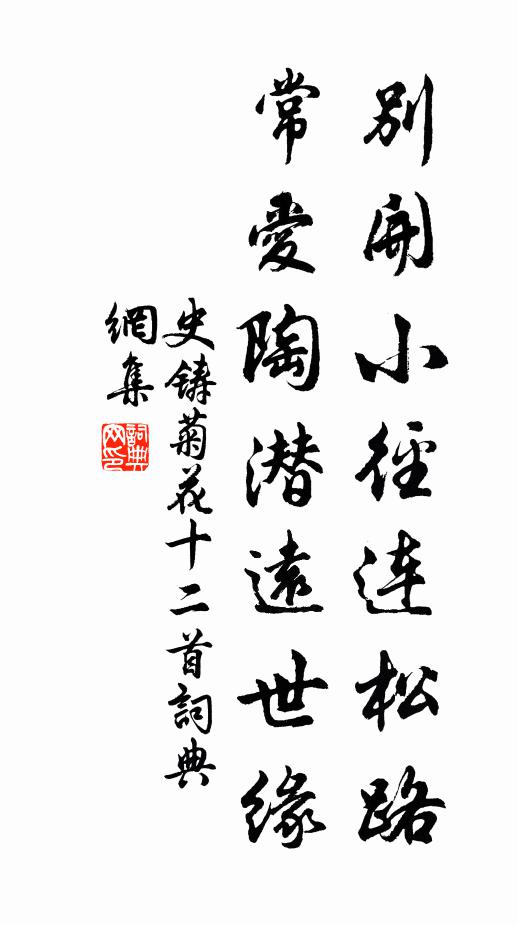 別開小徑連松路
常愛陶潛遠世緣
史鑄菊花十二首詞典
網集
詞典
网印